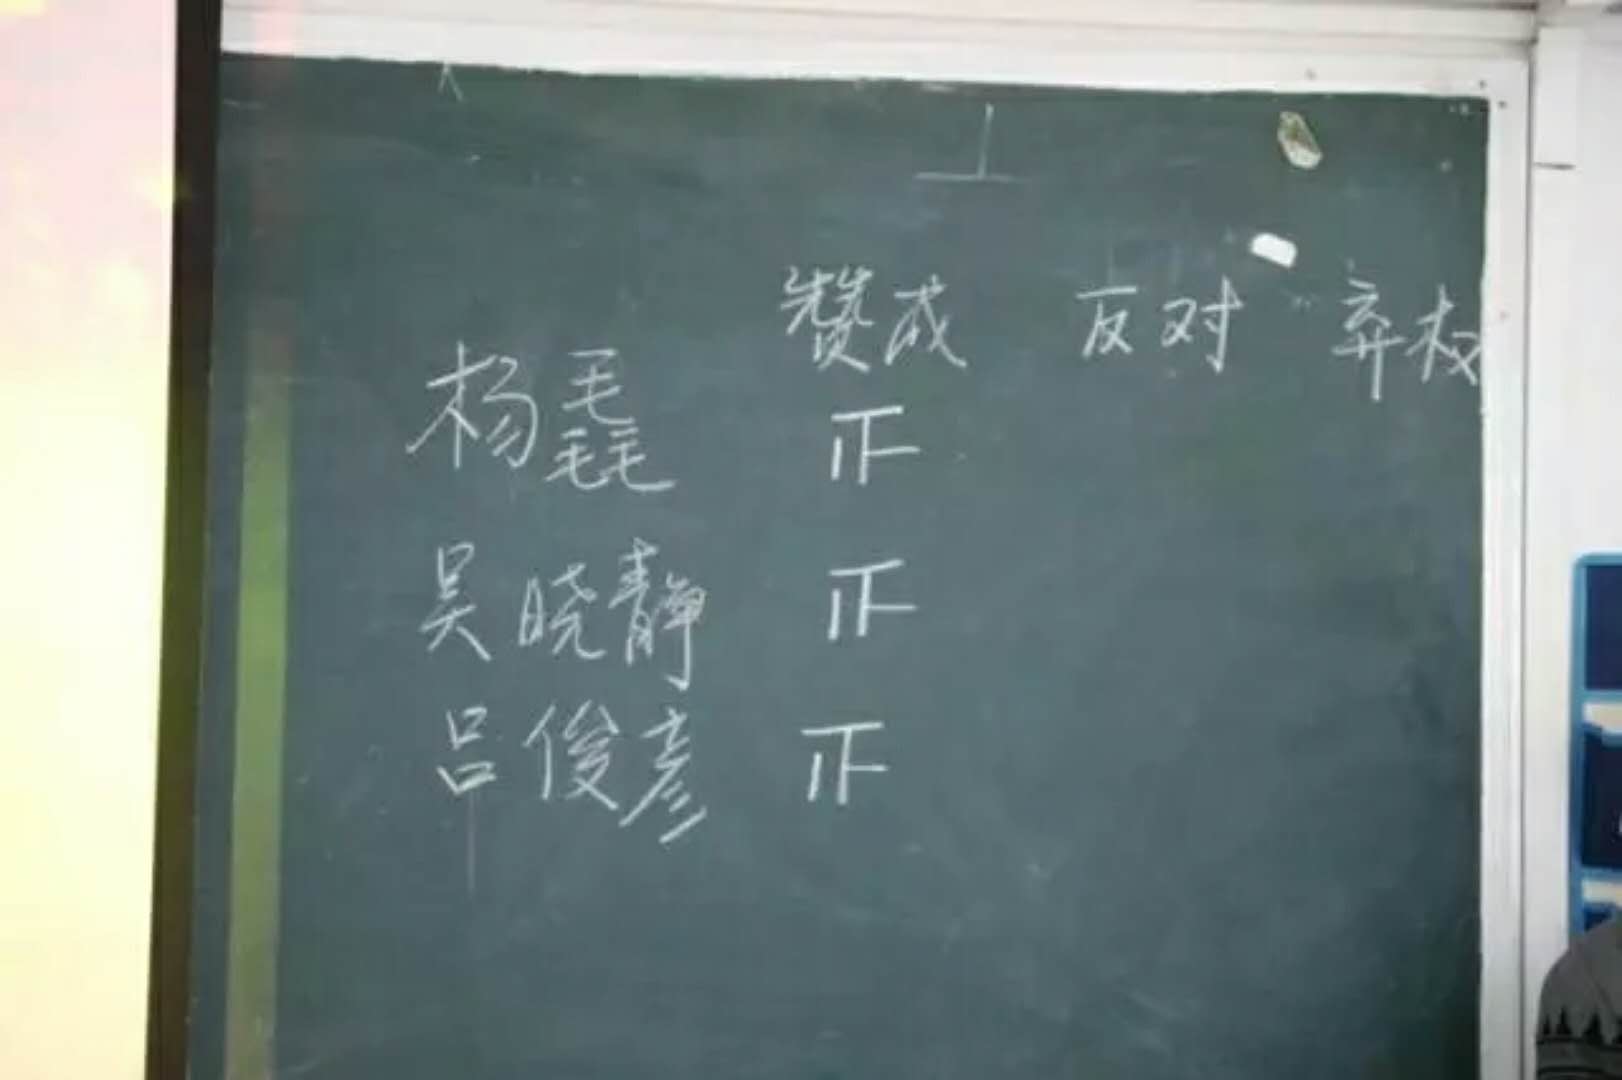 赞成 反对 弃权
杨毳 正
吴晓静 正
吕俊彦 正